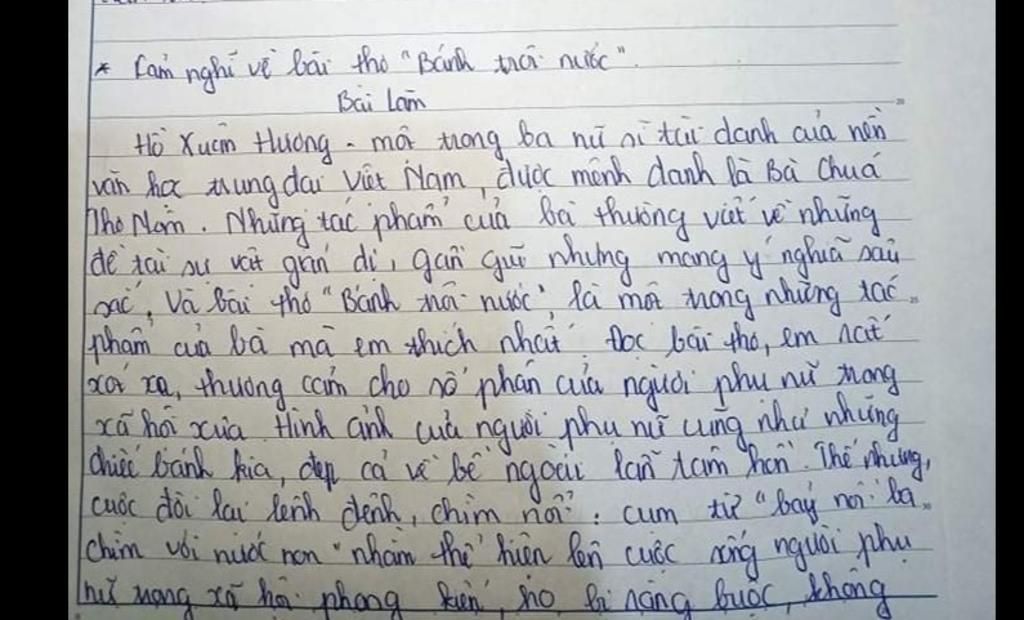 * Cảm nghĩ về bài thơ "Bánh trôi nước".
Bài Làm
Hồ Xuân Hương - một trong ba nữ sĩ tài danh của nền
văn học trung đại Việt Nam, được mệnh danh là Bà Chúa
Thơ Nôm. Những tác phẩm của bà thường viết về những
đề tài sự vật giản dị, gần gũi nhưng mang ý nghĩa sâu
sắc, Và bài thơ "Bánh trôi nước", là một trong những tác
phẩm của bà mà em thích nhất. Đọc bài thơ, em rất
xót xa, thương cảm cho số phận của người phụ nữ trong
xã hội xưa. Hình ảnh của người phụ nữ cũng như những
chiếc bánh kia, đẹp cả về bề ngoài lẫn tâm hồn. Thế nhưng,
cuộc đời lại lênh đênh, chìm nổi. cụm từ "bảy nổi ba
chìm với nước non" nhằm thể hiện lên cuộc sống người phụ
nữ trong xã hội phong kiến, họ bị ràng buộc, không